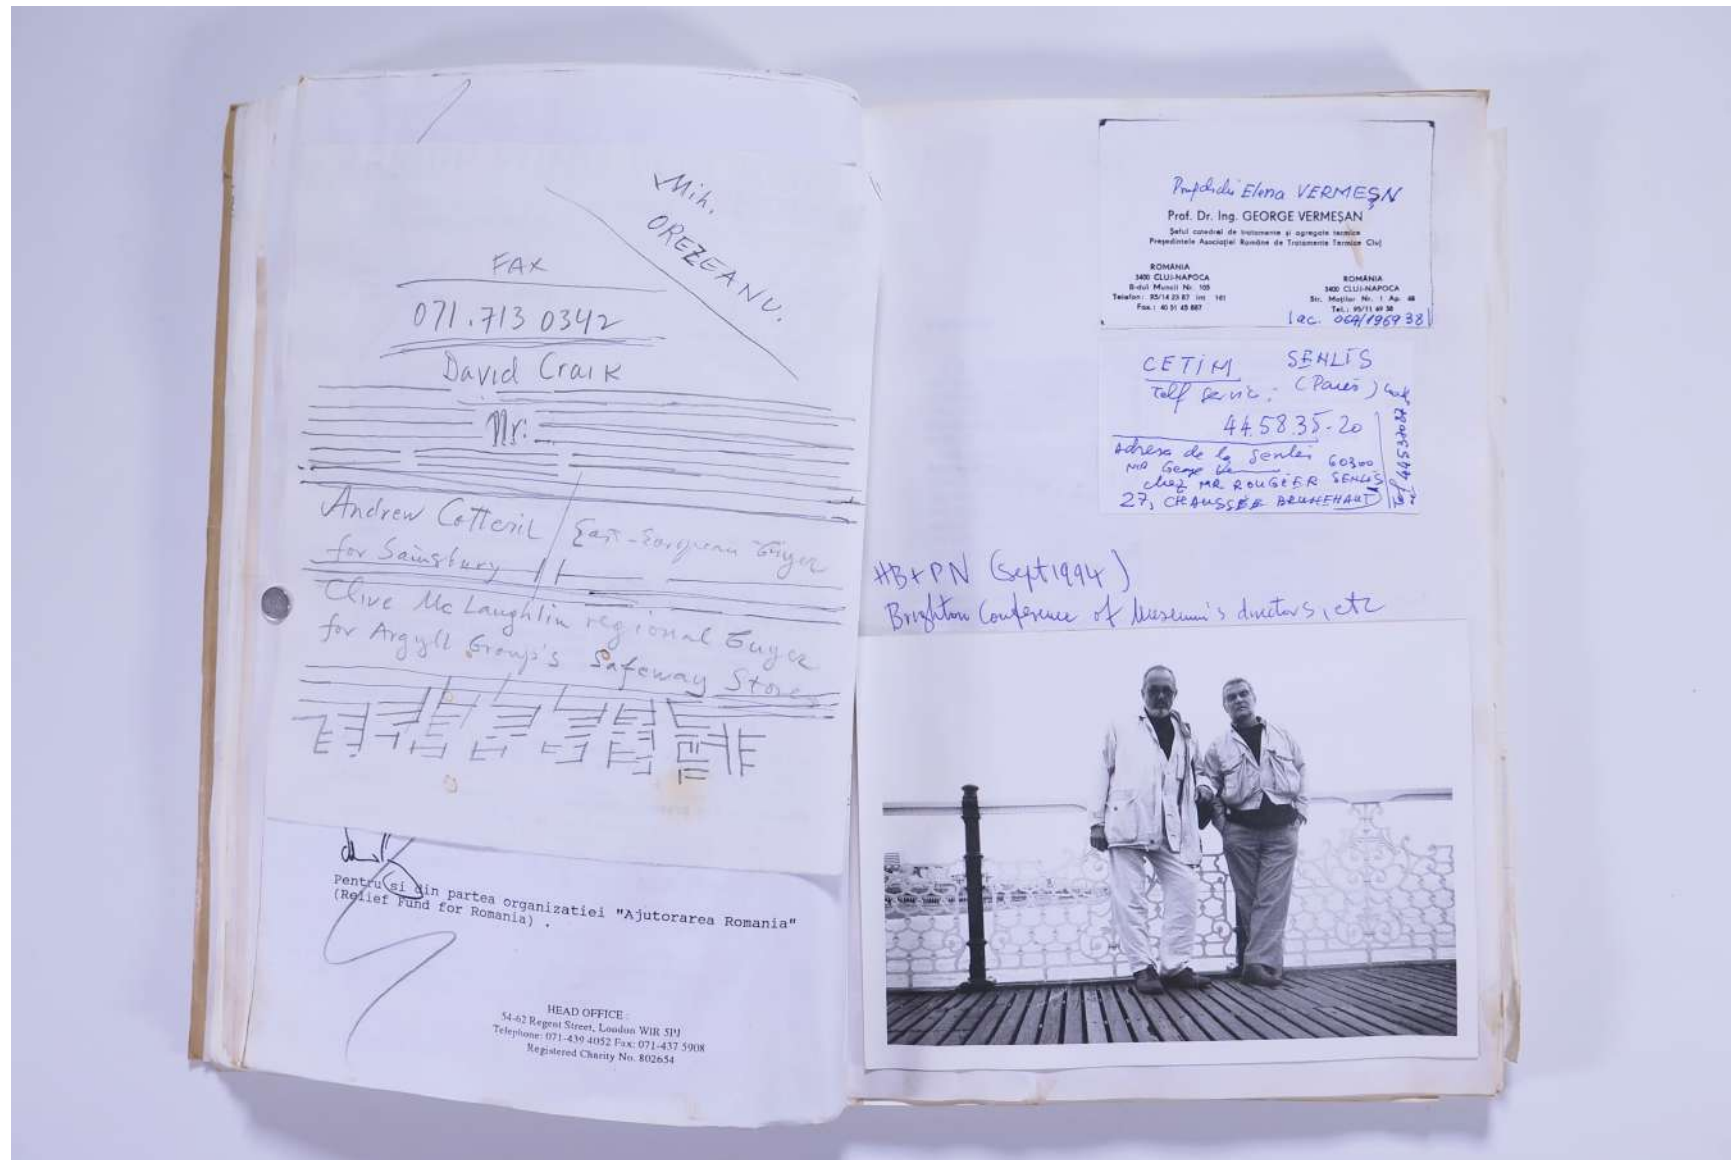 Mih.
OREZEANU.
FAX
071.713 0342
David Craik
Nr:
Andrew Cotteril
for Sainsbury
East-European Buyer
Clive Mc Laughlin regional Buyer
for Argyll Group's Safeway Stores
Pentru si din partea organizatiei "Ajutorarea Romania"
(Relief Fund for Romania) .
HEAD OFFICE :
54-62 Regent Street, London W1R 5PJ
Telephone: 071-439 4052 Fax: 071-437 5908
Registered Charity No. 802654
Elena VERMEȘN
Prof. Dr. Ing. GEORGE VERMEȘAN
Șeful catedrei de tratamente și agregate termice
Președintele Asociației Române de Tratamente Termice Cluj
ROMÂNIA
3400 CLUJ-NAPOCA
B-dul Muncii Nr. 103
Telefon: 95/14 23 87 int 161
Fax.: 40 51 45 887
ROMÂNIA
3400 CLUJ-NAPOCA
Str. Moților Nr. 1 Ap. 48
Tel.: 95/11 69 38
ac. 064/1969 38
CETIM SENLIS
Telf servic. (Paris)
44.58.35-20
Adresa de la Senlis 60300
MR George
chez MR ROUGIER SENLIS
27, CHAUSSÉE BRUNEHAUT
HB+PN (Sept 1994)
Brighton Conference of Museum's directors, etc